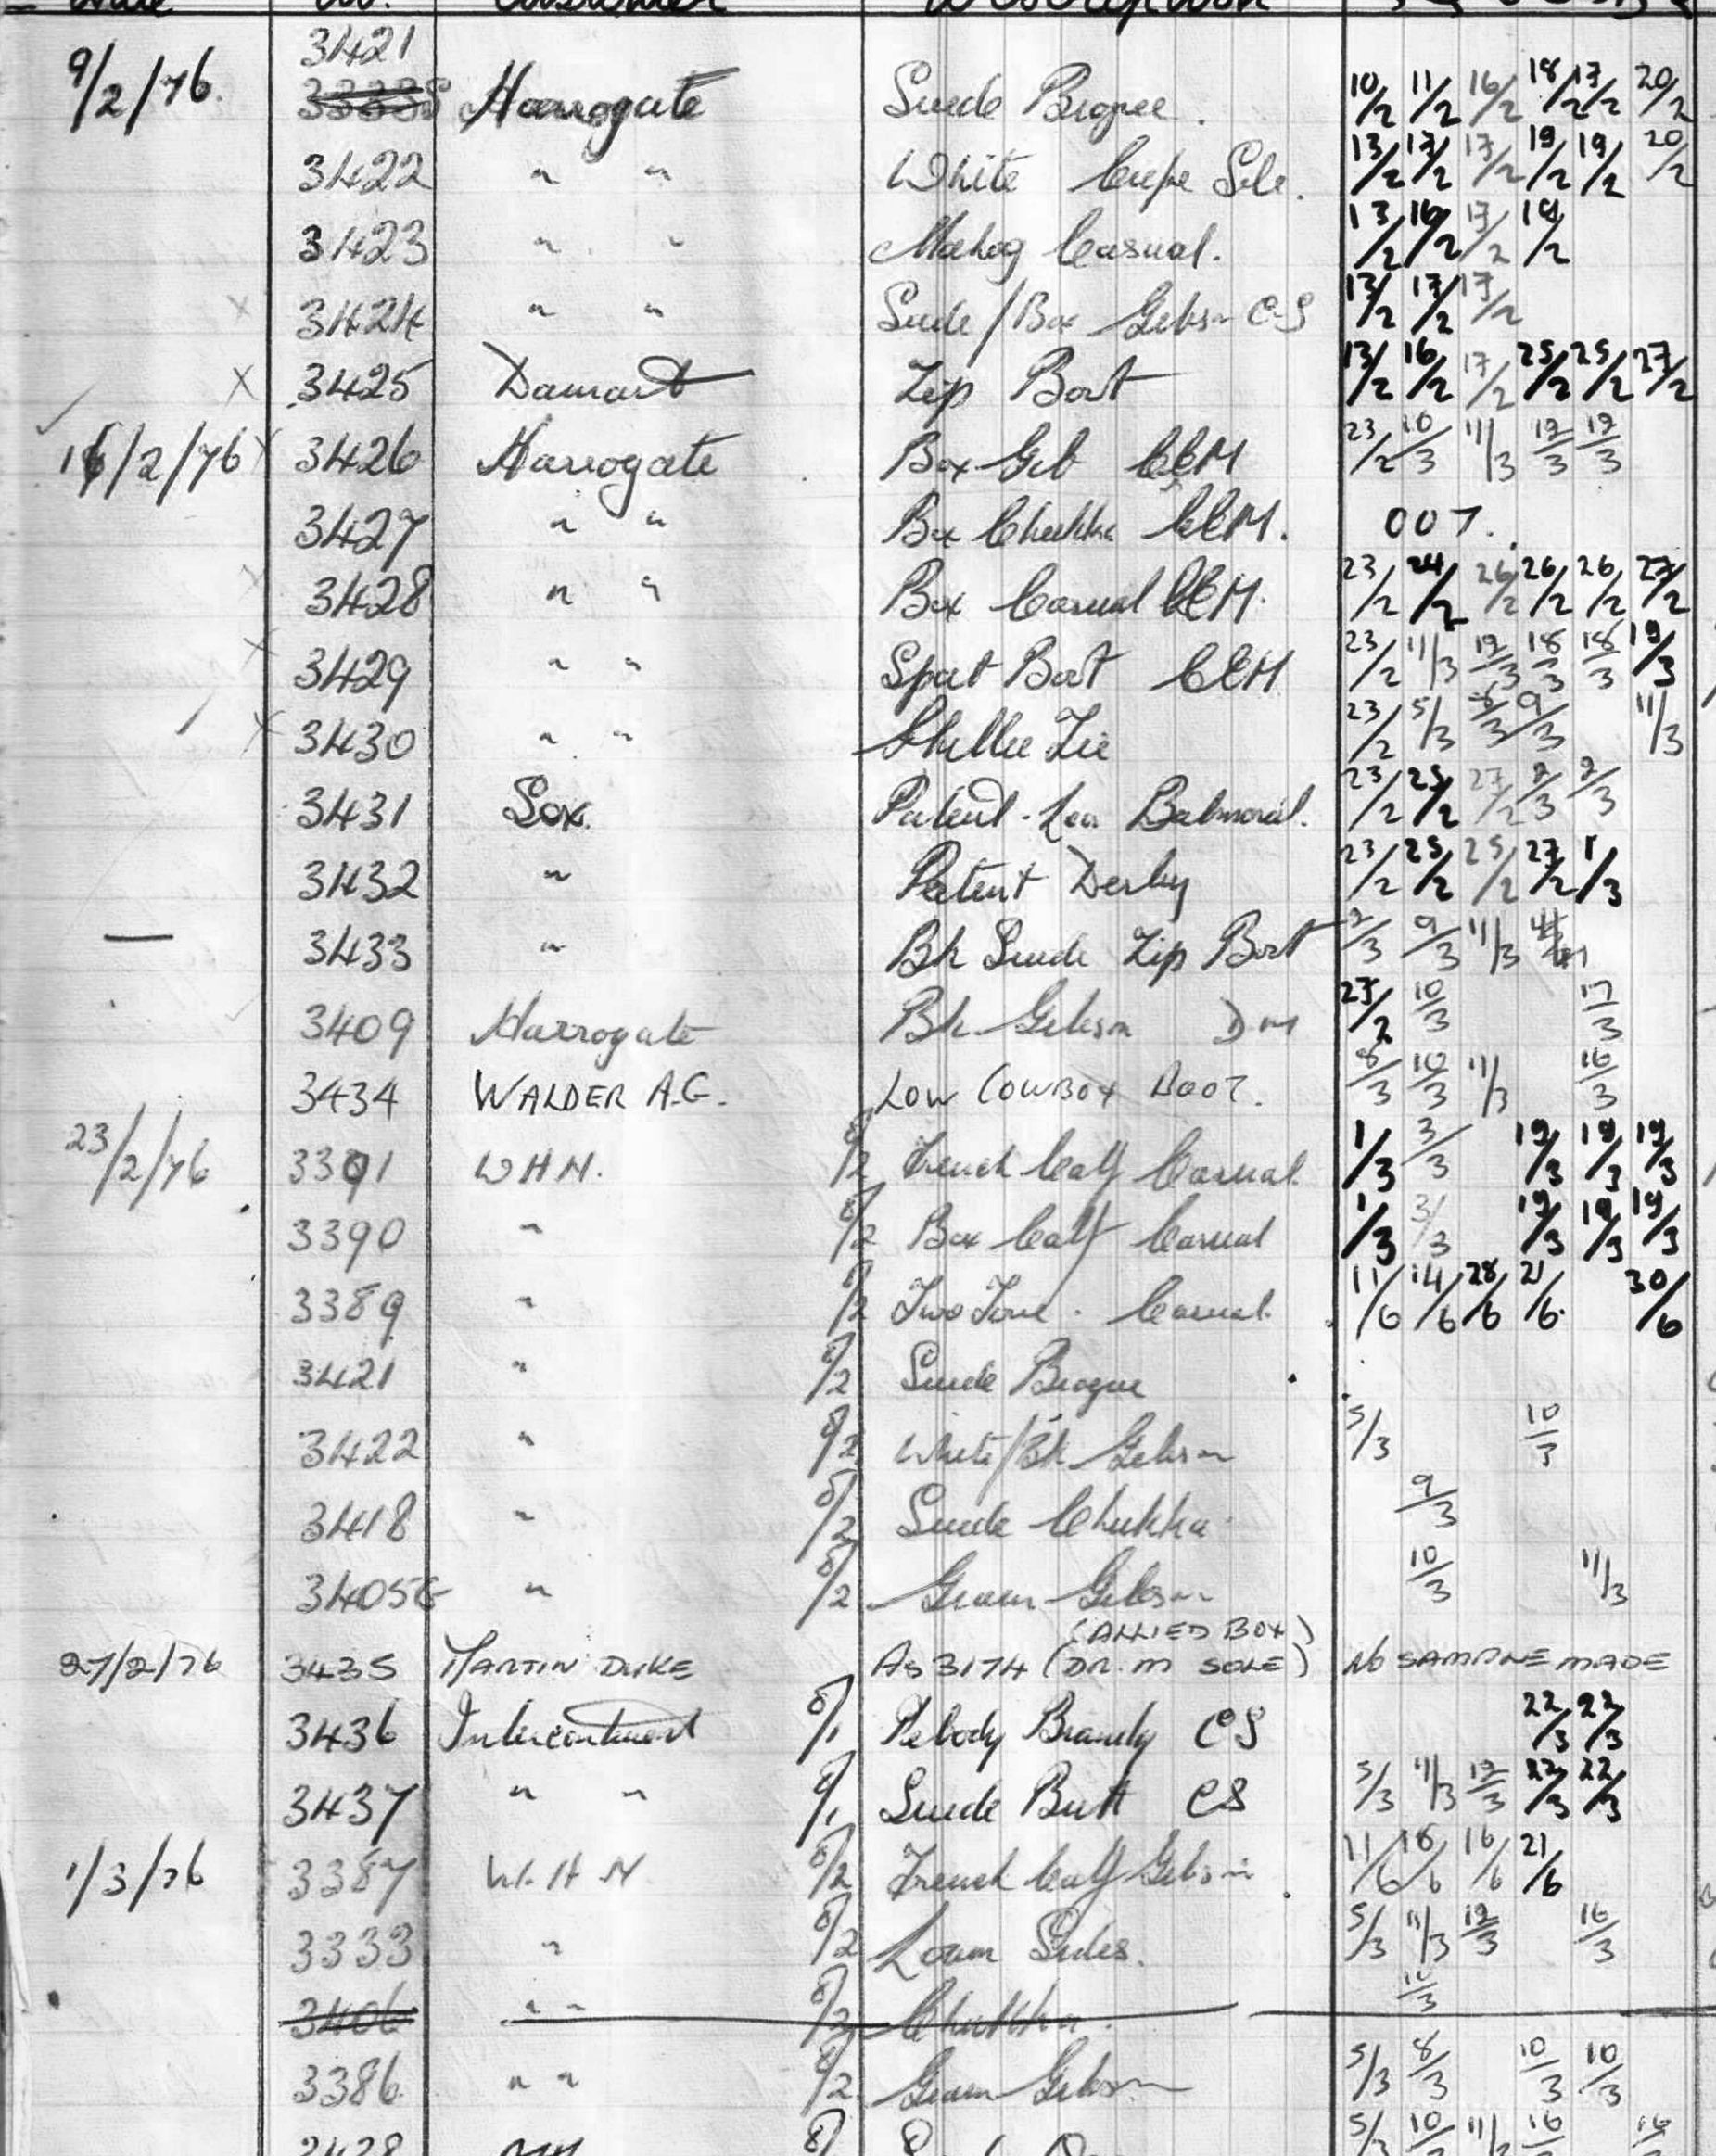 9/2/76. 3421 Harrogate Suede Brogue. 10/2 11/2 16/2 18/2 17/2 20/2
3422 " " White Crepe Sole. 13/2 17/2 17/2 19/2 19/2 20/2
3423 " " Mahog Casual. 13/2 16/2 17/2 19/2
3424 " " Suede/Box Gibson C-S 13/2 17/2 17/2
X 3425 Damart Zip Boot 13/2 16/2 17/2 25/2 25/2 27/2
16/2/76 X 3426 Harrogate Box Gib CEM 23/2 10/3 11/3 12/3 12/3
3427 " " Box Chukka CEM. OUT.
3428 " " Box Casual CEM. 23/2 24/2 26/2 26/2 26/2 27/2
X 3429 " " Sport Boot CEM 23/2 11/3 12/3 18/3 18/3 19/3
X 3430 " " Ghillie Tie 23/2 5/3 8/3 9/3 11/3
3431 Sox. Patent Balmoral. 23/2 25/2 27/2 2/3 2/3
3432 " Patent Derby 23/2 25/2 25/2 27/2 1/3
3433 " Bk Suede Zip Boot 2/3 9/3 11/3
3409 Harrogate Bk Gibson DM 23/2 10/3 17/3
3434 WALDER A.G. LOW COWBOY BOOT. 8/3 10/3 11/3 16/3
23/2/76 3391 WHN. 8/2 French Calf Casual. 1/3 3/3 19/3 19/3 19/3
3390 " 8/2 Box Calf Casual 1/3 3/3 19/3 19/3 19/3
3389 " 8/2 Two Tone. Casual. 11/6 14/6 28/6 21/6. 30/6
3421 " 8/2 Suede Brogue
3422 " 8/2 White/Bk Gibson 5/3 10/3
3418 " 8/2 Suede Chukka 9/3
3405G " 8/2 Grain Gibson 10/3 11/3
(ALLIED BOX)
27/2/76 3435 MARTIN DUKE AS 3174 (DR. M SOLE) NO SAMPLE MADE
3436 Intercontinent 8/1 Pebody Brandy CS 22/3 22/3
3437 " " 8/1 Suede Butt CS 5/3 11/3 12/3 22/3 22/3
1/3/76 3387 W.H N 8/2 French Calf Gibson 11/6 16/6 16/6 21/6
3333 " 8/2 Loam Sides. 5/3 11/3 12/3 16/3
3406 " " 8/2 Chukka. 10/3
3386 " " 8/2 Grain Gibson 5/3 8/3 10/3 10/3